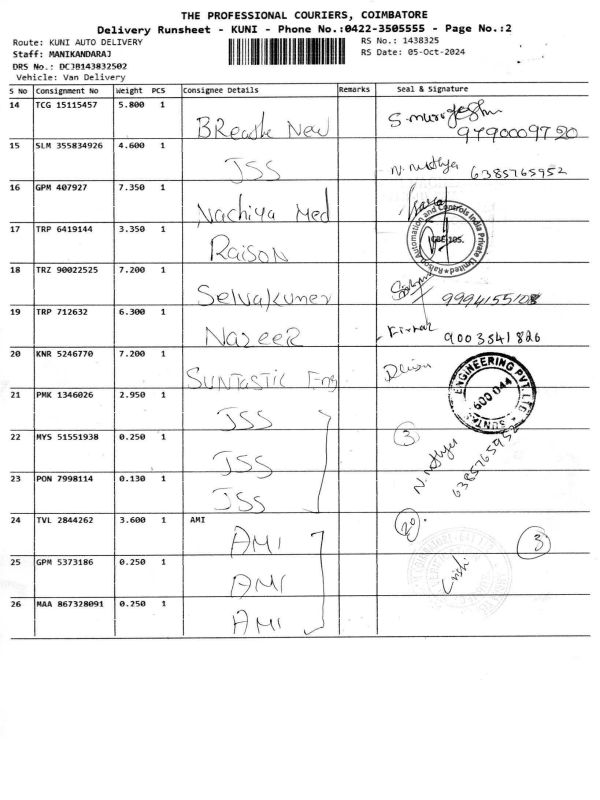 THE PROFESSIONAL COURIERS, COIMBATORE
Delivery Runsheet - KUNI - Phone No.:0422-3505555 - Page No.:2
Route: KUNI AUTO DELIVERY RS No.: 1438325
Staff: MANIKANDARAJ RS Date: 05-Oct-2024
DRS No.: DCJB143832502
Vehicle: Van Delivery
S No Consignment No Weight PCS Consignee Details Remarks Seal & Signature
14 TCG 15115457 5.800 1
BReathe New 9790009720
15 SLM 355834926 4.600 1
JSS N. Nithya 6385765952
16 GPM 407927 7.350 1
Nachiya Med
17 TRP 6419144 3.350 1
RaisoN
Raison Automation and Controls India Private Limited
18 TRZ 90022525 7.200 1
Selvakumer
19 TRP 712632 6.300 1
Nazeer 9003541826
20 KNR 5246770 7.200 1
SUNTASTIC Eng
ENGINEERING PVT. LTD.
600 044
21 PMK 1346026 2.950 1
JSS
22 MYS 51551938 0.250 1
JSS 3
23 PON 7998114 0.130 1
JSS N. Nithya 6385765952
24 TVL 2844262 3.600 1 AMI
AMI 3
25 GPM 5373186 0.250 1
AMI
26 MAA 867328091 0.250 1
AMI